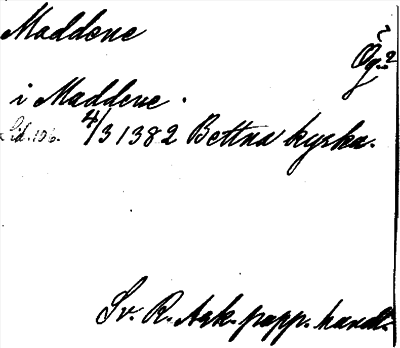 Maddene
Ög.?
i Maddene.
Sid. 106. 4/3 1382 Bettna kyrka.
Sv. R. Ark. papp. handl.